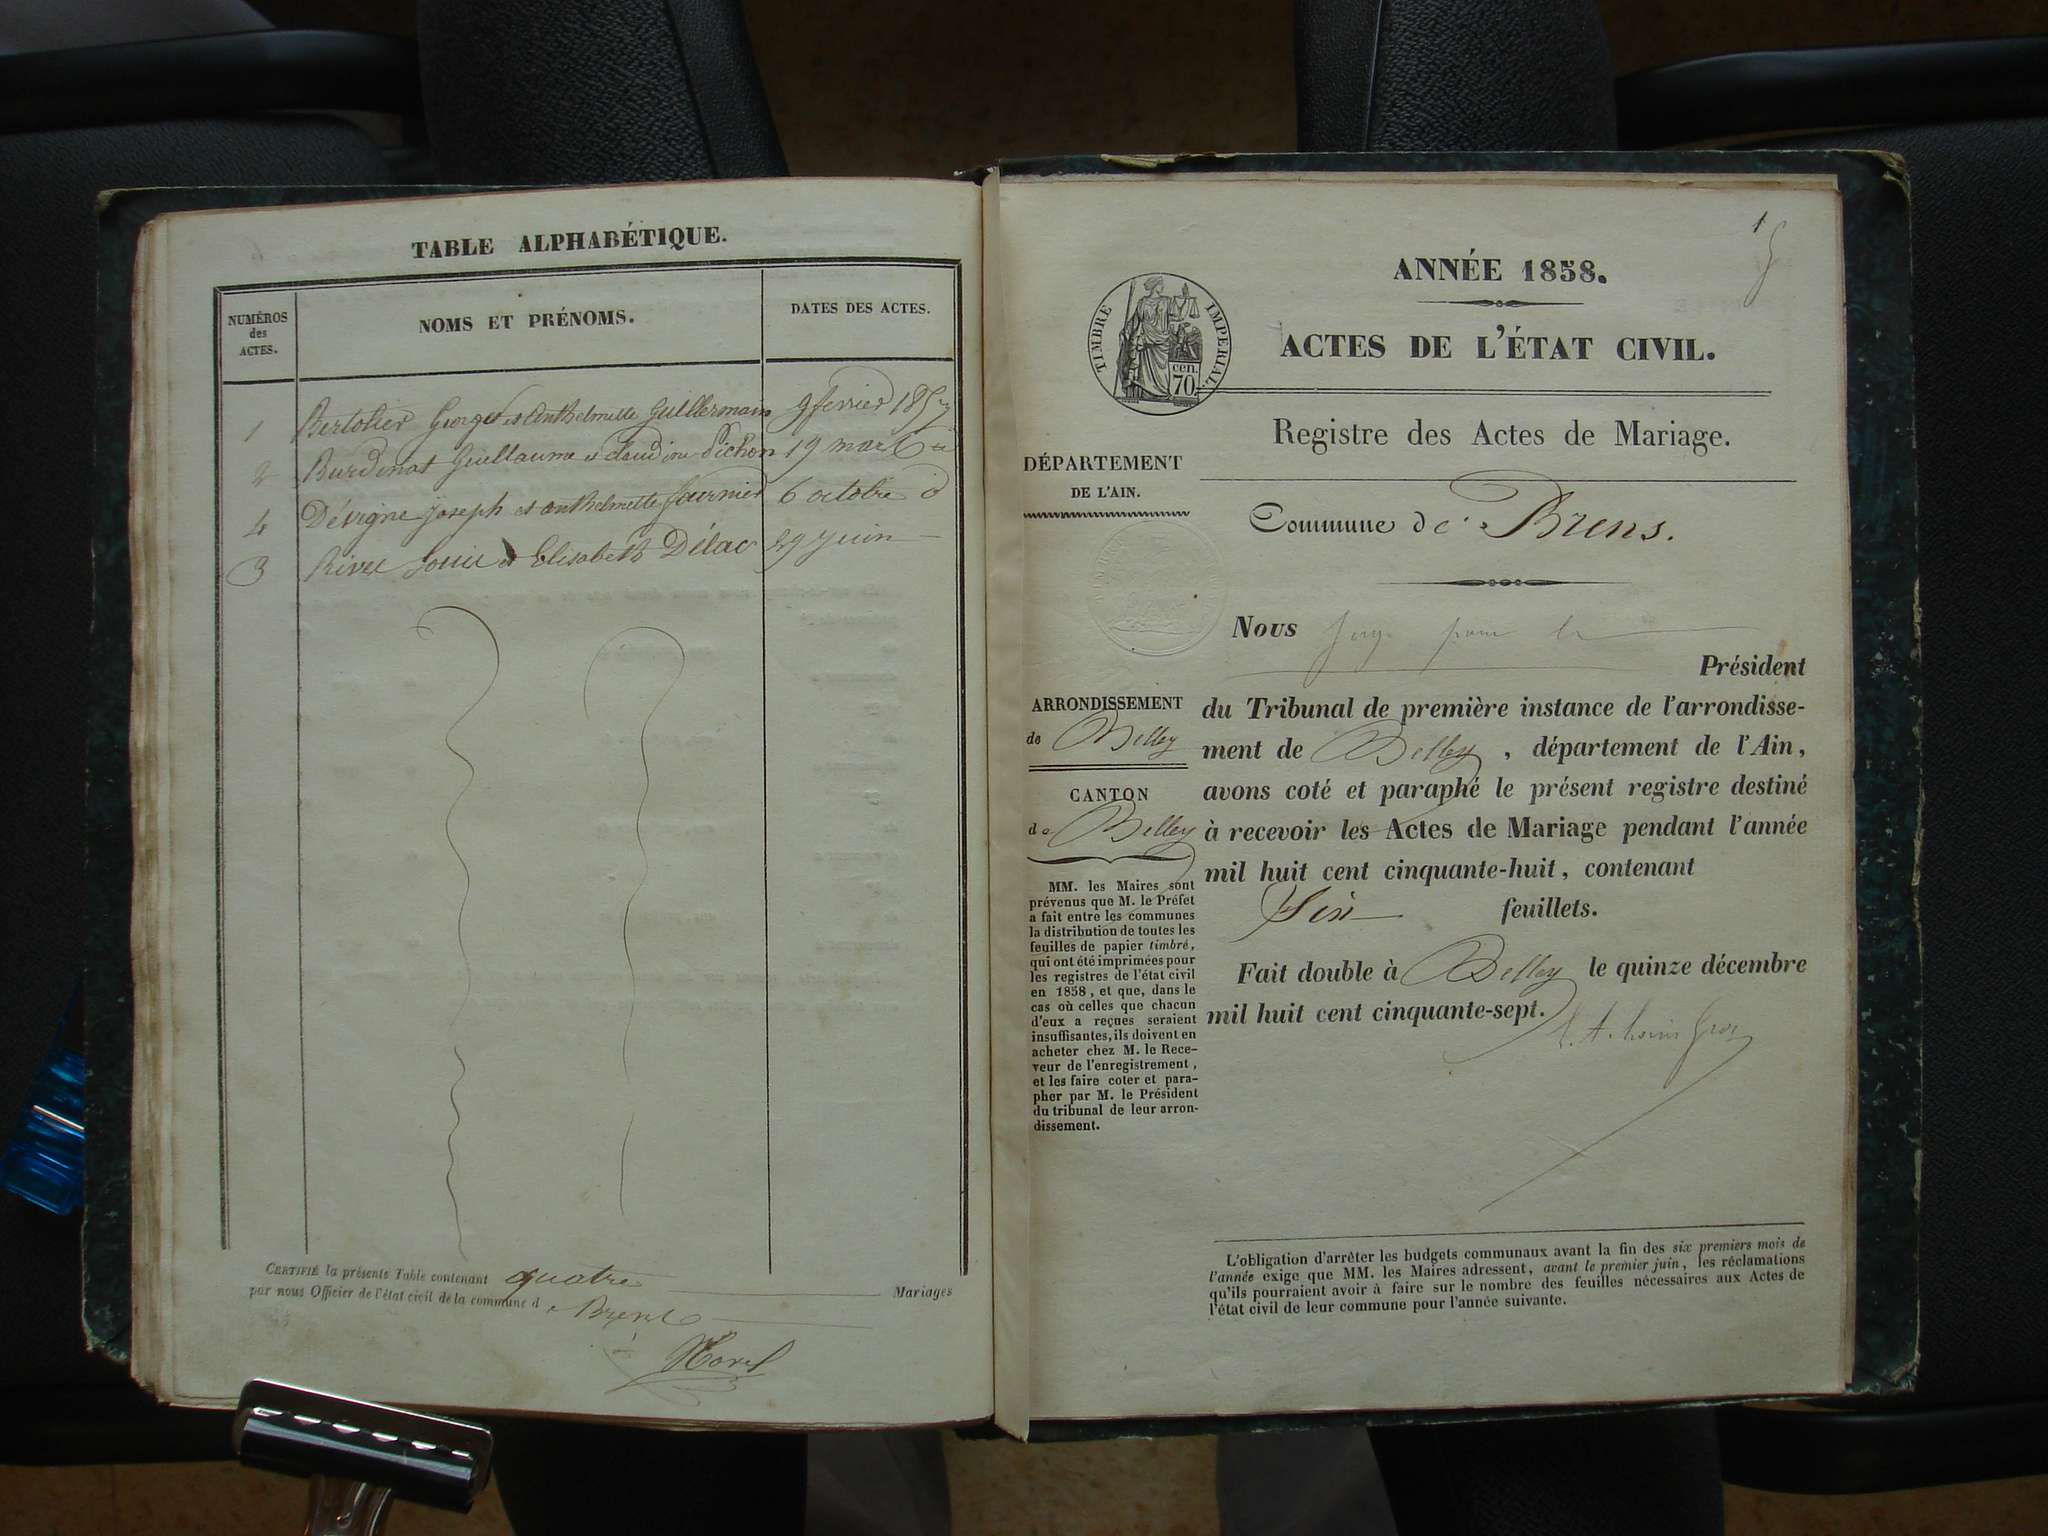 TABLE ALPHABÉTIQUE.
NUMÉROS
des
ACTES.
NOMS ET PRÉNOMS.
DATES DES ACTES.
1 Bertolier George et Anthelmette Guillermain 9 fevrier 1857
2 Burdinat Guillaume et Claudine Pichon 19 mars
4 Dévigne Joseph et Anthelmette fournier 6 octobre
3 Rivet Louis et Elisabeth Délac 29 Juin
CERTIFIÉ la présente Table contenant quatre Mariages
par nous Officier de l'état civil de la commune de Brens
1
ANNÉE 1858.
TIMBRE IMPERIAL
cen.
70.
ACTES DE L'ÉTAT CIVIL.
Registre des Actes de Mariage.
DÉPARTEMENT
DE L'AIN.
Commune de Brens.
Nous Juge pour le
Président
ARRONDISSEMENT
de Belley
CANTON
de Belley
MM. les Maires sont
prévenus que M. le Préfet
a fait entre les communes
la distribution de toutes les
feuilles de papier timbré,
qui ont été imprimées pour
les registres de l'état civil
en 1858, et que, dans le
cas où celles que chacun
d'eux a reçues seraient
insuffisantes, ils doivent en
acheter chez M. le Rece-
veur de l'enregistrement,
et les faire coter et para-
pher par M. le Président
du tribunal de leur arron-
dissement.
du Tribunal de première instance de l'arrondisse-
ment de Belley, département de l'Ain,
avons coté et paraphé le présent registre destiné
à recevoir les Actes de Mariage pendant l'année
mil huit cent cinquante-huit, contenant
Six feuillets.
Fait double à Belley le quinze décembre
mil huit cent cinquante-sept.
L'obligation d'arrêter les budgets communaux avant la fin des six premiers mois de
l'année exige que MM. les Maires adressent, avant le premier juin, les réclamations
qu'ils pourraient avoir à faire sur le nombre des feuilles nécessaires aux Actes de
l'état civil de leur commune pour l'année suivante.